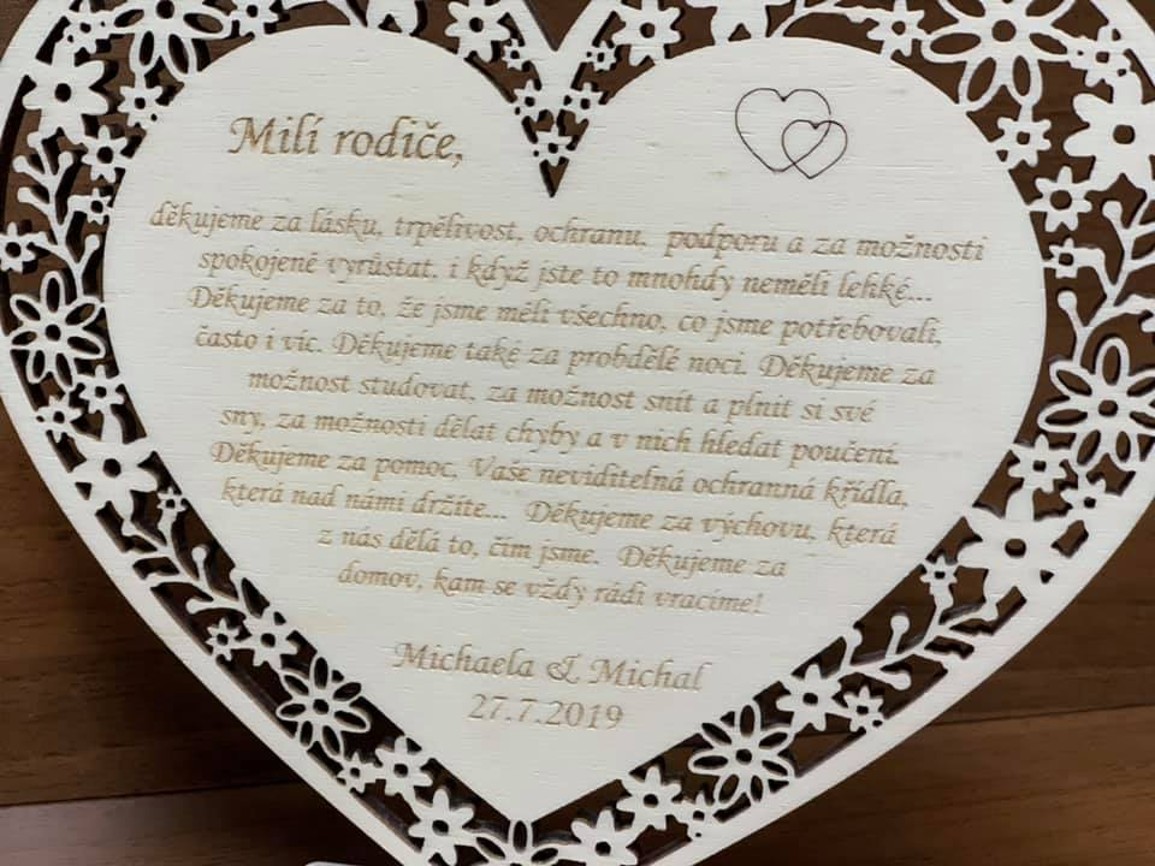 Milí rodiče,
děkujeme za lásku, trpělivost, ochranu, podporu a za možnosti
spokojeně vyrůstat, i když jste to mnohdy neměli lehké...
Děkujeme za to, že jsme měli všechno, co jsme potřebovali,
často i víc. Děkujeme také za probdělé noci. Děkujeme za
možnost studovat, za možnost snít a plnit si své
sny, za možnosti dělat chyby a v nich hledat poučení.
Děkujeme za pomoc, Vaše neviditelná ochranná křídla,
která nad námi držíte... Děkujeme za výchovu, která
z nás dělá to, čím jsme. Děkujeme za
domov, kam se vždy rádi vracíme!
Michaela & Michal
27.7.2019